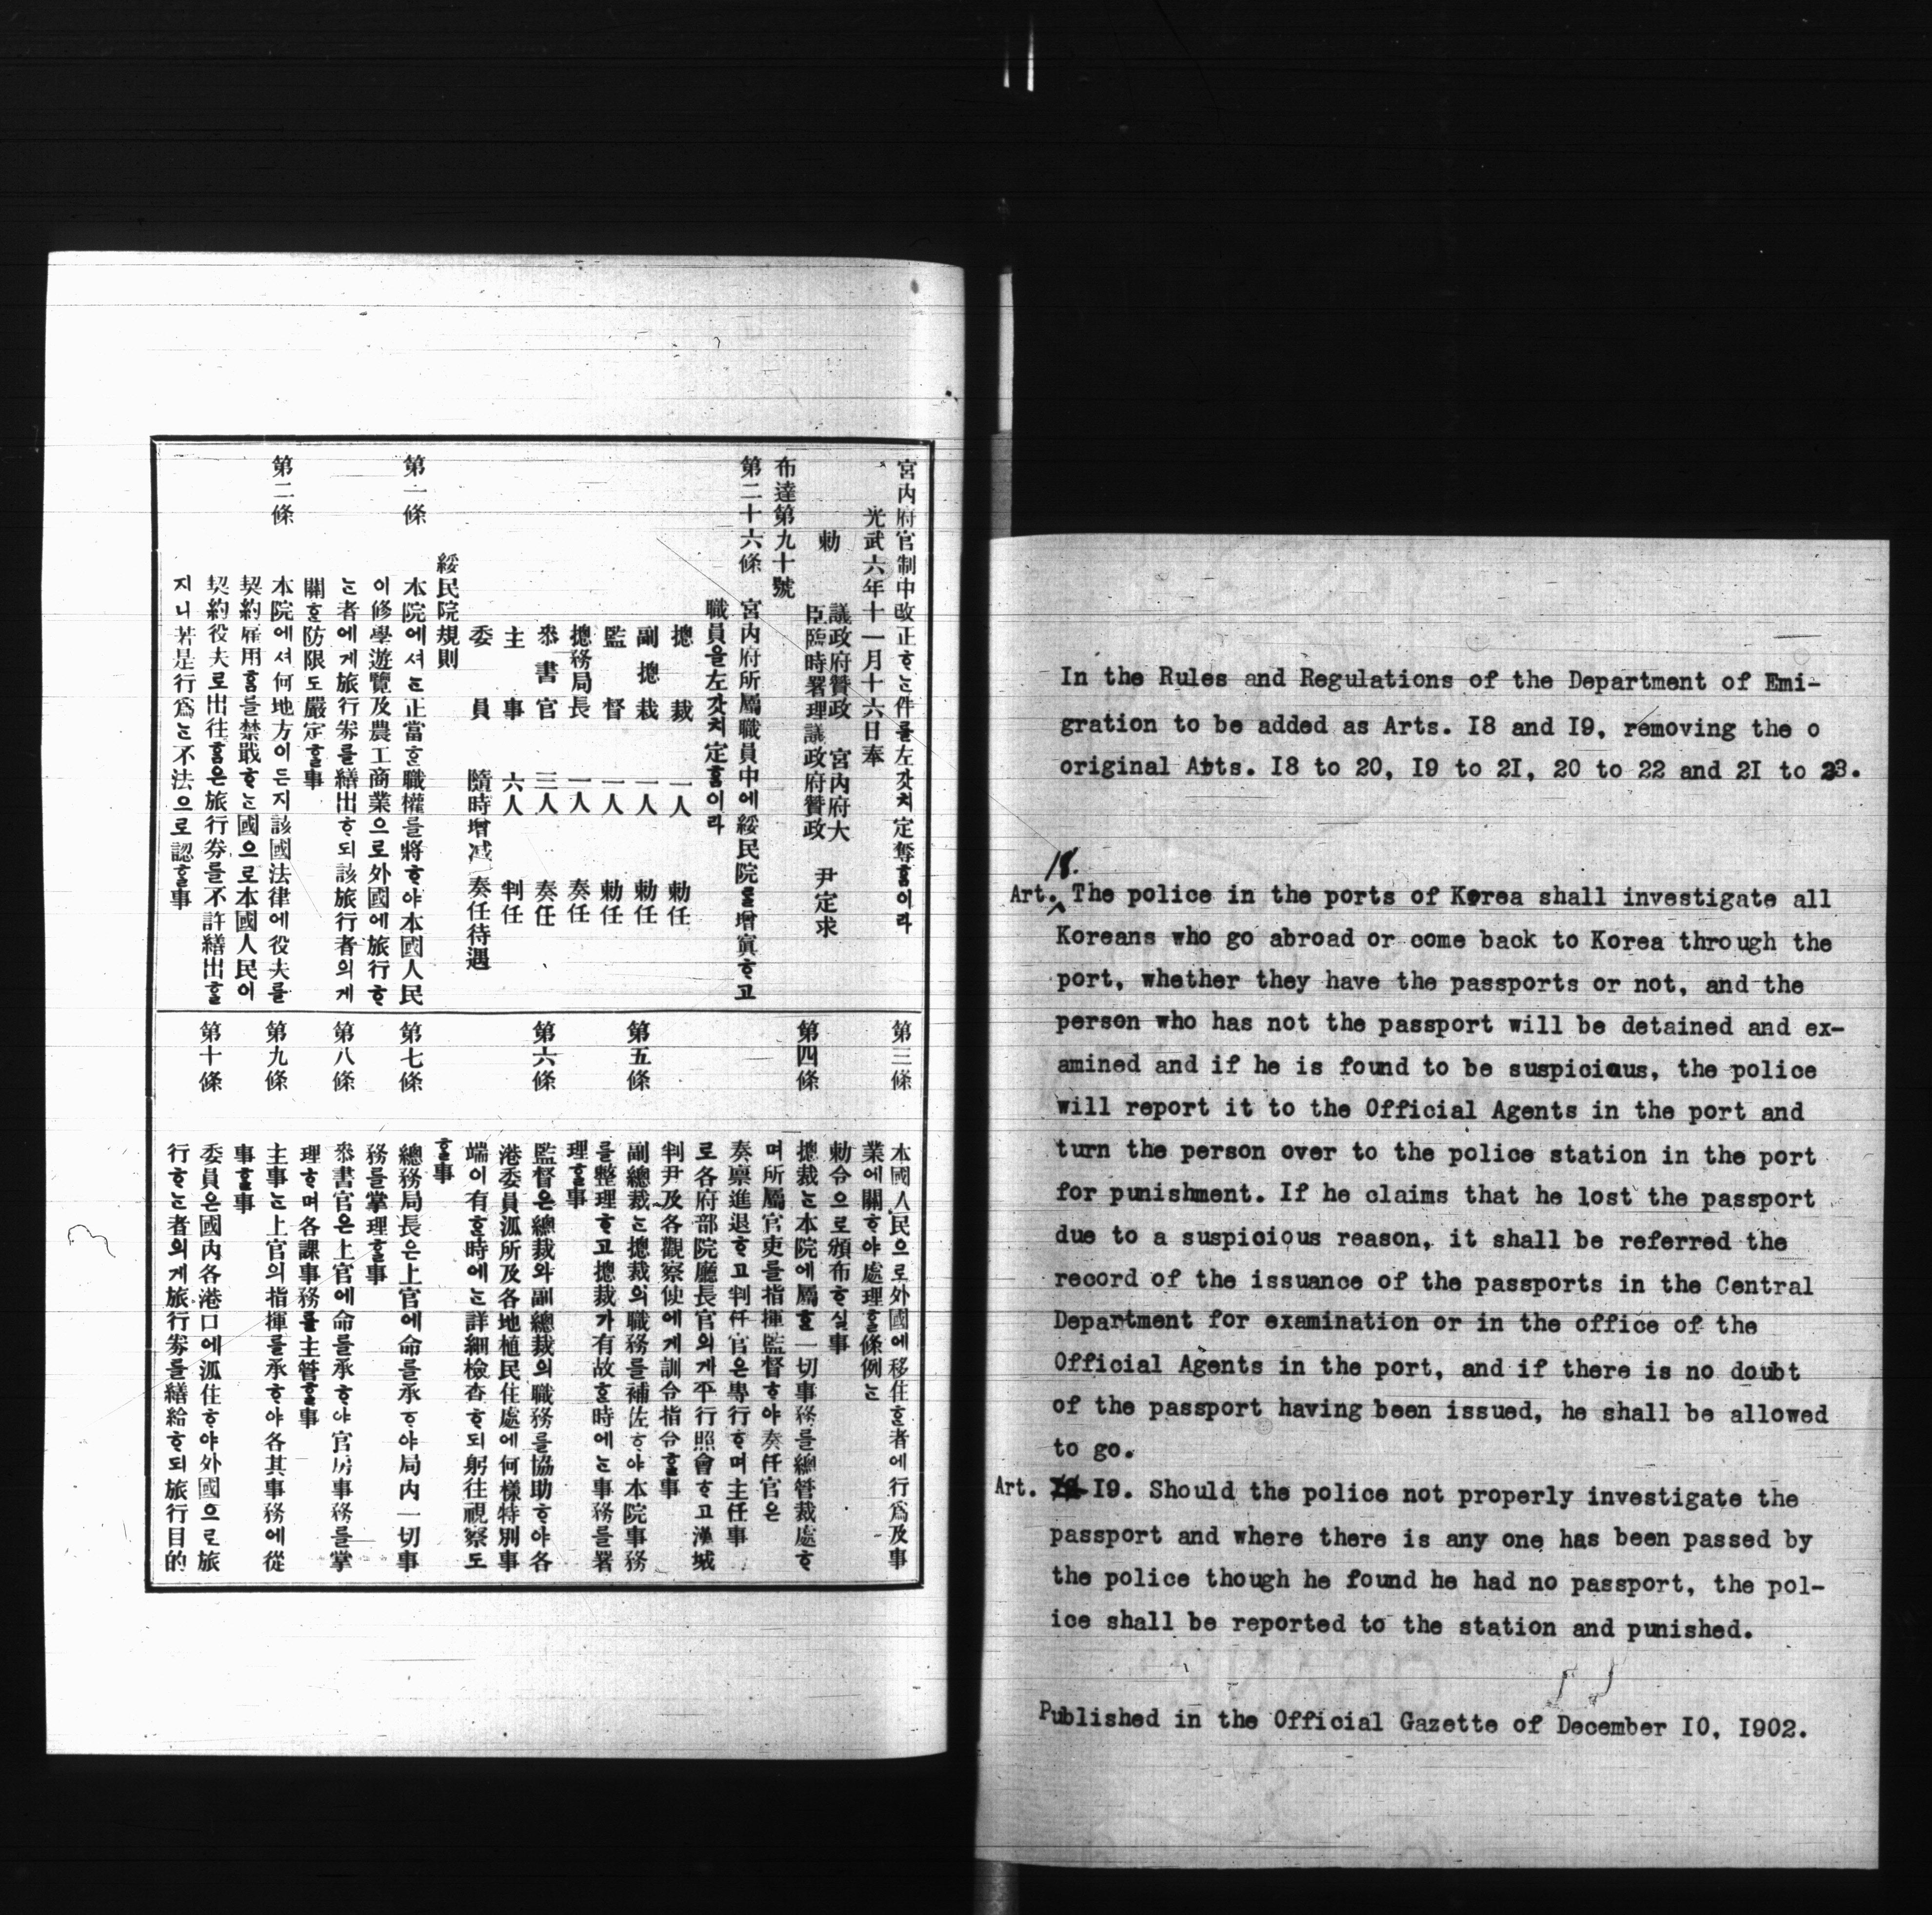 宮內府官制中改正ᄒᆞᄂᆞᆫ件를左갓치定奪홈이라
光武六年十一月十六日奉
勅
議政府贊政 宮內府大
臣臨時署理議政府贊政 尹定求
布達第九十號
第二十六條 宮內府所屬職員中에綏民院를增寘ᄒᆞ고
職員을左갓치定홈이라
摠裁 一人 勅任
副摠裁 一人 勅任
監督 一人 勅任
摠務局長 一人 奏任
叅書官 三人 奏任
主事 六人 判任
委員 隨時增减 奏任待遇
綏民院規則
第一條 本院에셔ᄂᆞᆫ正當ᄒᆞᆫ職權를將ᄒᆞ야本國人民
이修學遊覽及農工商業으로外國에旅行ᄒᆞ
ᄂᆞᆫ者에게旅行券를繕出ᄒᆞ되該旅行者의게
關ᄒᆞᆫ防限도嚴定ᄒᆞᆯ事
第二條 本院에셔何地方이든지該國法律에役夫를
契約雇用홈를禁戢ᄒᆞᄂᆞᆫ國으로本國人民이
契約役夫로出往홈은旅行券를不許繕出ᄒᆞᆯ
지니若是行爲ᄂᆞᆫ不法으로認ᄒᆞᆯ事
第三條 本國人民으로外國에移住ᄒᆞᆫ者에行爲及事
業에關ᄒᆞ야處理ᄒᆞᆯ條例ᄂᆞᆫ
勅令으로頒布ᄒᆞ실事
第四條 摠裁ᄂᆞᆫ本院에屬ᄒᆞᆫ一切事務를總管裁處ᄒᆞ
며所屬官吏를指揮監督ᄒᆞ야奏任官은
奏禀進退ᄒᆞ고判任官은專行ᄒᆞ며主任事
로各府部院廳長官의게平行照會ᄒᆞ고漢城
判尹及各觀察使에게訓令指令ᄒᆞᆯ事
第五條 副總裁ᄂᆞᆫ摠裁의職務를補佐ᄒᆞ야本院事務
를整理ᄒᆞ고摠裁가有故ᄒᆞᆫ時에ᄂᆞᆫ事務를署
理ᄒᆞᆯ事
第六條 監督은總裁와副總裁의職務를協助ᄒᆞ야各
港委員派所及各地植民住處에何樣特別事
端이有ᄒᆞᆫ時에ᄂᆞᆫ詳細檢查ᄒᆞ되躬往視察도
ᄒᆞᆯ事
第七條 總務局長은上官에命를承ᄒᆞ야局內一切事
務를掌理ᄒᆞᆯ事
第八條 叅書官은上官에命를承ᄒᆞ야官房事務를掌
理ᄒᆞ며各課事務를主管ᄒᆞᆯ事
第九條 主事ᄂᆞᆫ上官의指揮를承ᄒᆞ야各其事務에從
事ᄒᆞᆯ事
第十條 委員은國內各港口에派住ᄒᆞ야外國으로旅
行ᄒᆞᄂᆞᆫ者의게旅行券를繕給ᄒᆞ되旅行目的
In the Rules and Regulations of the Department of Emi-
gration to be added as Arts. I8 and I9, removing the o
original Arts. I8 to 20, I9 to 2I, 20 to 22 and 2I to 23.
18.
Art. The police in the ports of Korea shall investigate all
Koreans who go abroad or come back to Korea through the
port, whether they have the passports or not, and the
person who has not the passport will be detained and ex-
amined and if he is found to be suspicious, the police
will report it to the Official Agents in the port and
turn the person over to the police station in the port
for punishment. If he claims that he lost the passport
due to a suspicious reason, it shall be referred the
record of the issuance of the passports in the Central
Department for examination or in the office of the
Official Agents in the port, and if there is no doubt
of the passport having been issued, he shall be allowed
to go.
Art. I9. Should the police not properly investigate the
passport and where there is any one has been passed by
the police though he found he had no passport, the pol-
ice shall be reported to the station and punished.
Published in the Official Gazette of December I0, I902.